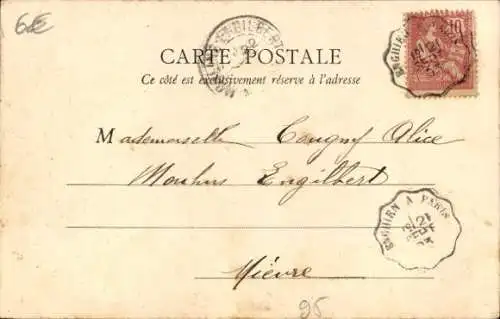 6€
CARTE POSTALE
Ce côté est exclusivement réservé à l'adresse
10
Mademoiselle Cougny Alice
Moulins Engilbert
Nièvre
ENGHIEN A PARIS
21
95